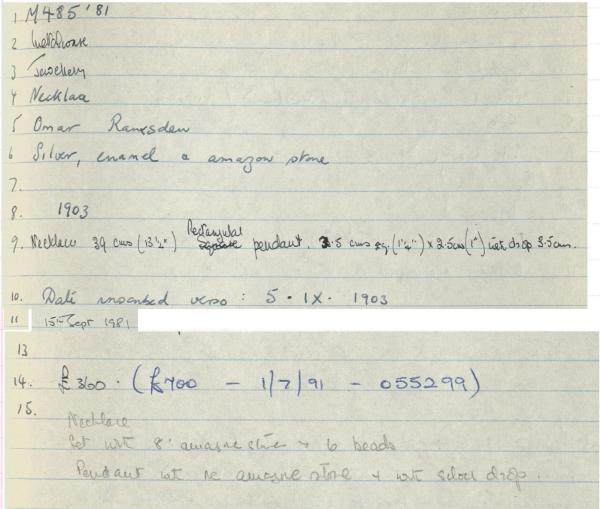 1 M485 '81
2 Metalwork
3 Jewellery
4 Necklace
5 Omar Ramsden
6 Silver, enamel & amazon stone
7.
8. 1903
9. Necklace 39 cms (13½") Rectangular pendant, 3.5 cms (1¼") x 2.5cms (1") with drop 3.5cms.
10. Date inscribed verso: 5 · IX · 1903
11 15th Sept 1981
13
14. £360 · (£700 - 1/7/91 - 055299)
15.
Necklace
Set with 8 stones + 6 beads
Pendant with stone + with silver drop.